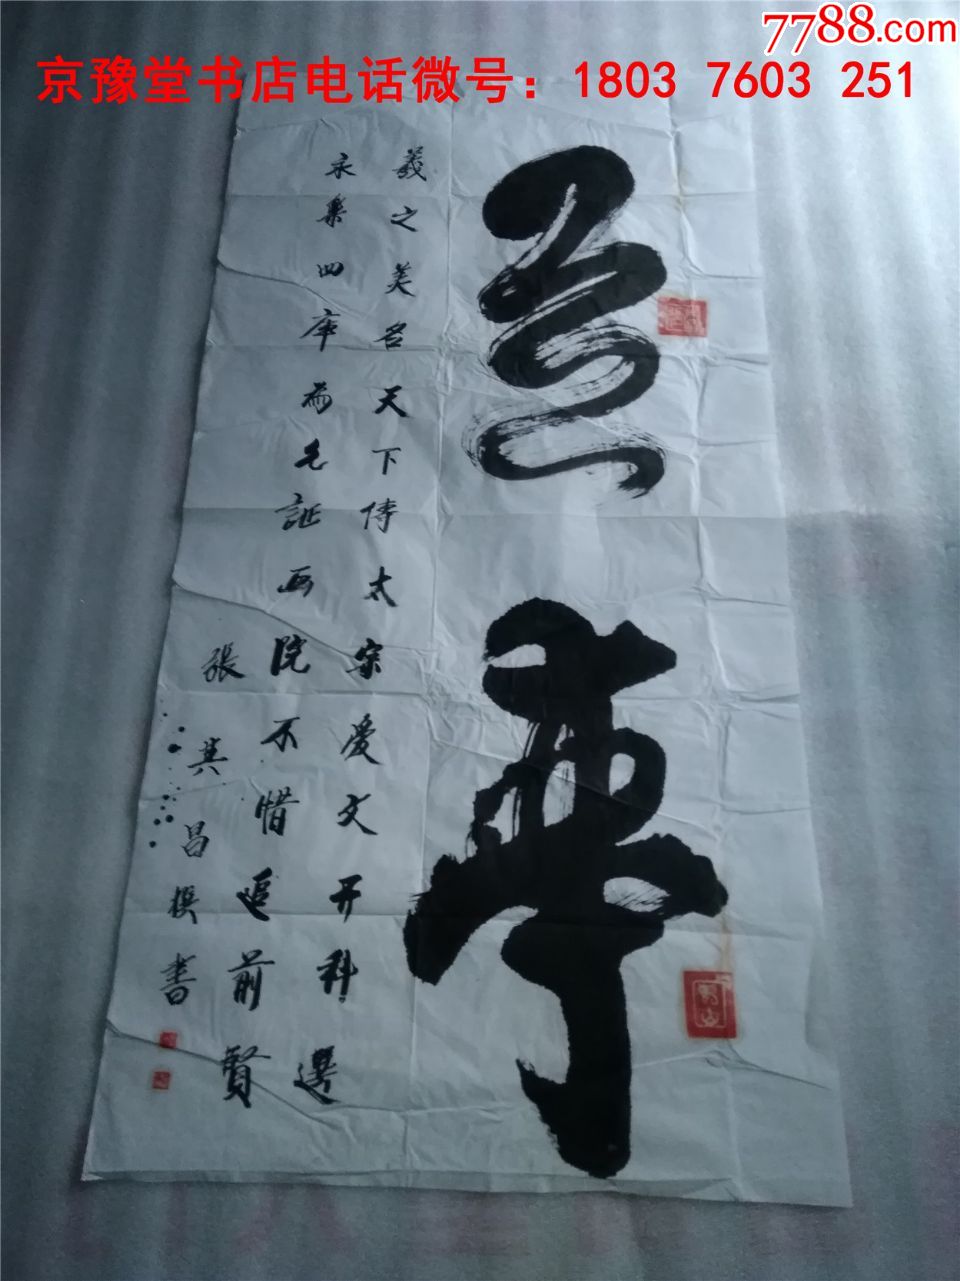 7788.com
京豫堂书店电话微号：1803 7603 251
羲之美名天下傳太宗爱文开科選
永樂四库而誕画院不惜追前賢
張其昌撰書